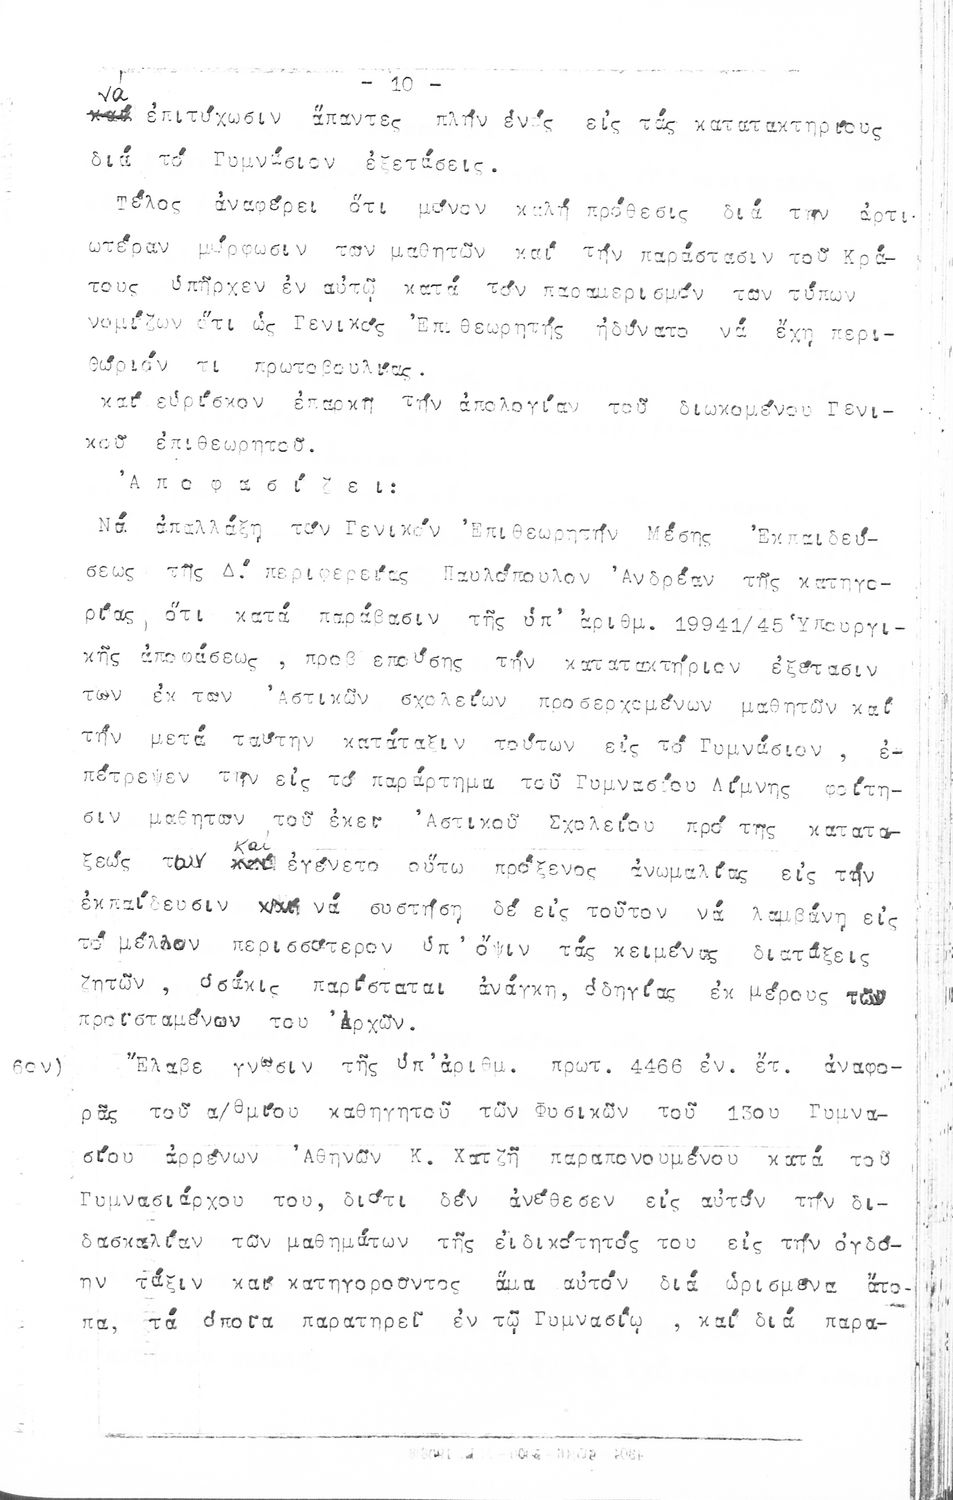 - 10 -
νά
καί ἐπιτύχωσιν ἅπαντες πλήν ἑνός εἰς τάς κατατακτηρίους
διά τό Γυμνάσιον ἐξετάσεις.
Τέλος ἀναφέρει ὅτι μόνον καλή πρόθεσις διά την ἀρτι-
ωτέραν μόρφωσιν των μαθητῶν καί τήν παράστασιν τοῦ Κρά-
τους ὑπῆρχεν ἐν αὐτῷ κατά τόν παραμερισμόν των τύπων
νομίζων ὅτι ὡς Γενικός Ἐπιθεωρητής ἠδύνατο νά ἔχῃ περι-
θώριόν τι πρωτοβουλίας.
καί εὑρίσκον ἐπαρκῆ τήν ἀπολογίαν τοῦ διωκομένου Γενι-
κοῦ ἐπιθεωρητοῦ.
Ἀ π ο φ α σ ί ζ ε ι:
Νά ἀπαλλάξῃ τόν Γενικόν Ἐπιθεωρητήν Μέσης Ἐκπαιδεύ-
σεως τῆς Δ΄. περιφερείας Παυλόπουλον Ἀνδρέαν τῆς κατηγο-
ρίας, ὅτι κατά παράβασιν τῆς ὑπ' ἀριθμ. 19941/45 Ὑπουργι-
κῆς ἀποφάσεως , προβλεπούσης τήν κατατακτήριον ἐξέτασιν
των ἐκ των Ἀστικῶν σχολείων προσερχομένων μαθητῶν καί
τήν μετά ταύτην κατάταξιν τούτων εἰς τό Γυμνάσιον , ἐ-
πέτρεψεν την εἰς τό παράρτημα τοῦ Γυμνασίου Λίμνης φοίτη-
σιν μαθητων τοῦ ἐκεῖ Ἀστικοῦ Σχολείου πρό της κατατα-
καί
ξεώς των καί ἐγένετο οὕτω πρόξενος ἀνωμαλίας εἰς τήν
ἐκπαίδευσιν καί νά συστήσῃ δέ εἰς τοῦτον νά λαμβάνῃ εἰς
τό μέλλον περισσότερον ὑπ' ὄψιν τάς κειμένας διατάξεις
ζητῶν , ὁσάκις παρίσταται ἀνάγκη, ὁδηγίας ἐκ μέρους τῶν
προϊσταμένων του Ἀρχῶν.
6ον) Ἔλαβε γνῶσιν τῆς ὑπ'ἀριθμ. πρωτ. 4466 ἐν. ἔτ. ἀναφο-
ρᾶς τοῦ α/θμίου καθηγητοῦ τῶν Φυσικῶν τοῦ 13ου Γυμνα-
σίου ἀρρένων Ἀθηνῶν Κ. Χατζῆ παραπονουμένου κατά τοῦ
Γυμνασιάρχου του, διότι δέν ἀνέθεσεν εἰς αὐτόν τήν δι-
δασκαλίαν τῶν μαθημάτων τῆς εἰδικότητός του εἰς τήν ὀγδό-
ην τάξιν καί κατηγοροῦντος ἅμα αὐτόν διά ὡρισμένα ἄτο-
πα, τά ὁποῖα παρατηρεῖ ἐν τῷ Γυμνασίῳ , καί διά παρα-